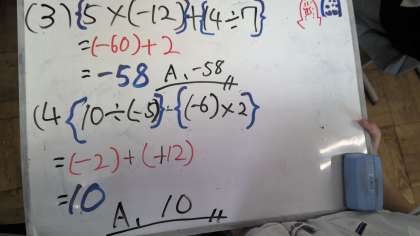 (3) {5×(-12)}+{14÷7}
=(-60)+2
=-58 A,-58
(4 {10÷(-5)}-{(-6)×2}
=(-2)+(+12)
=10
A, 10